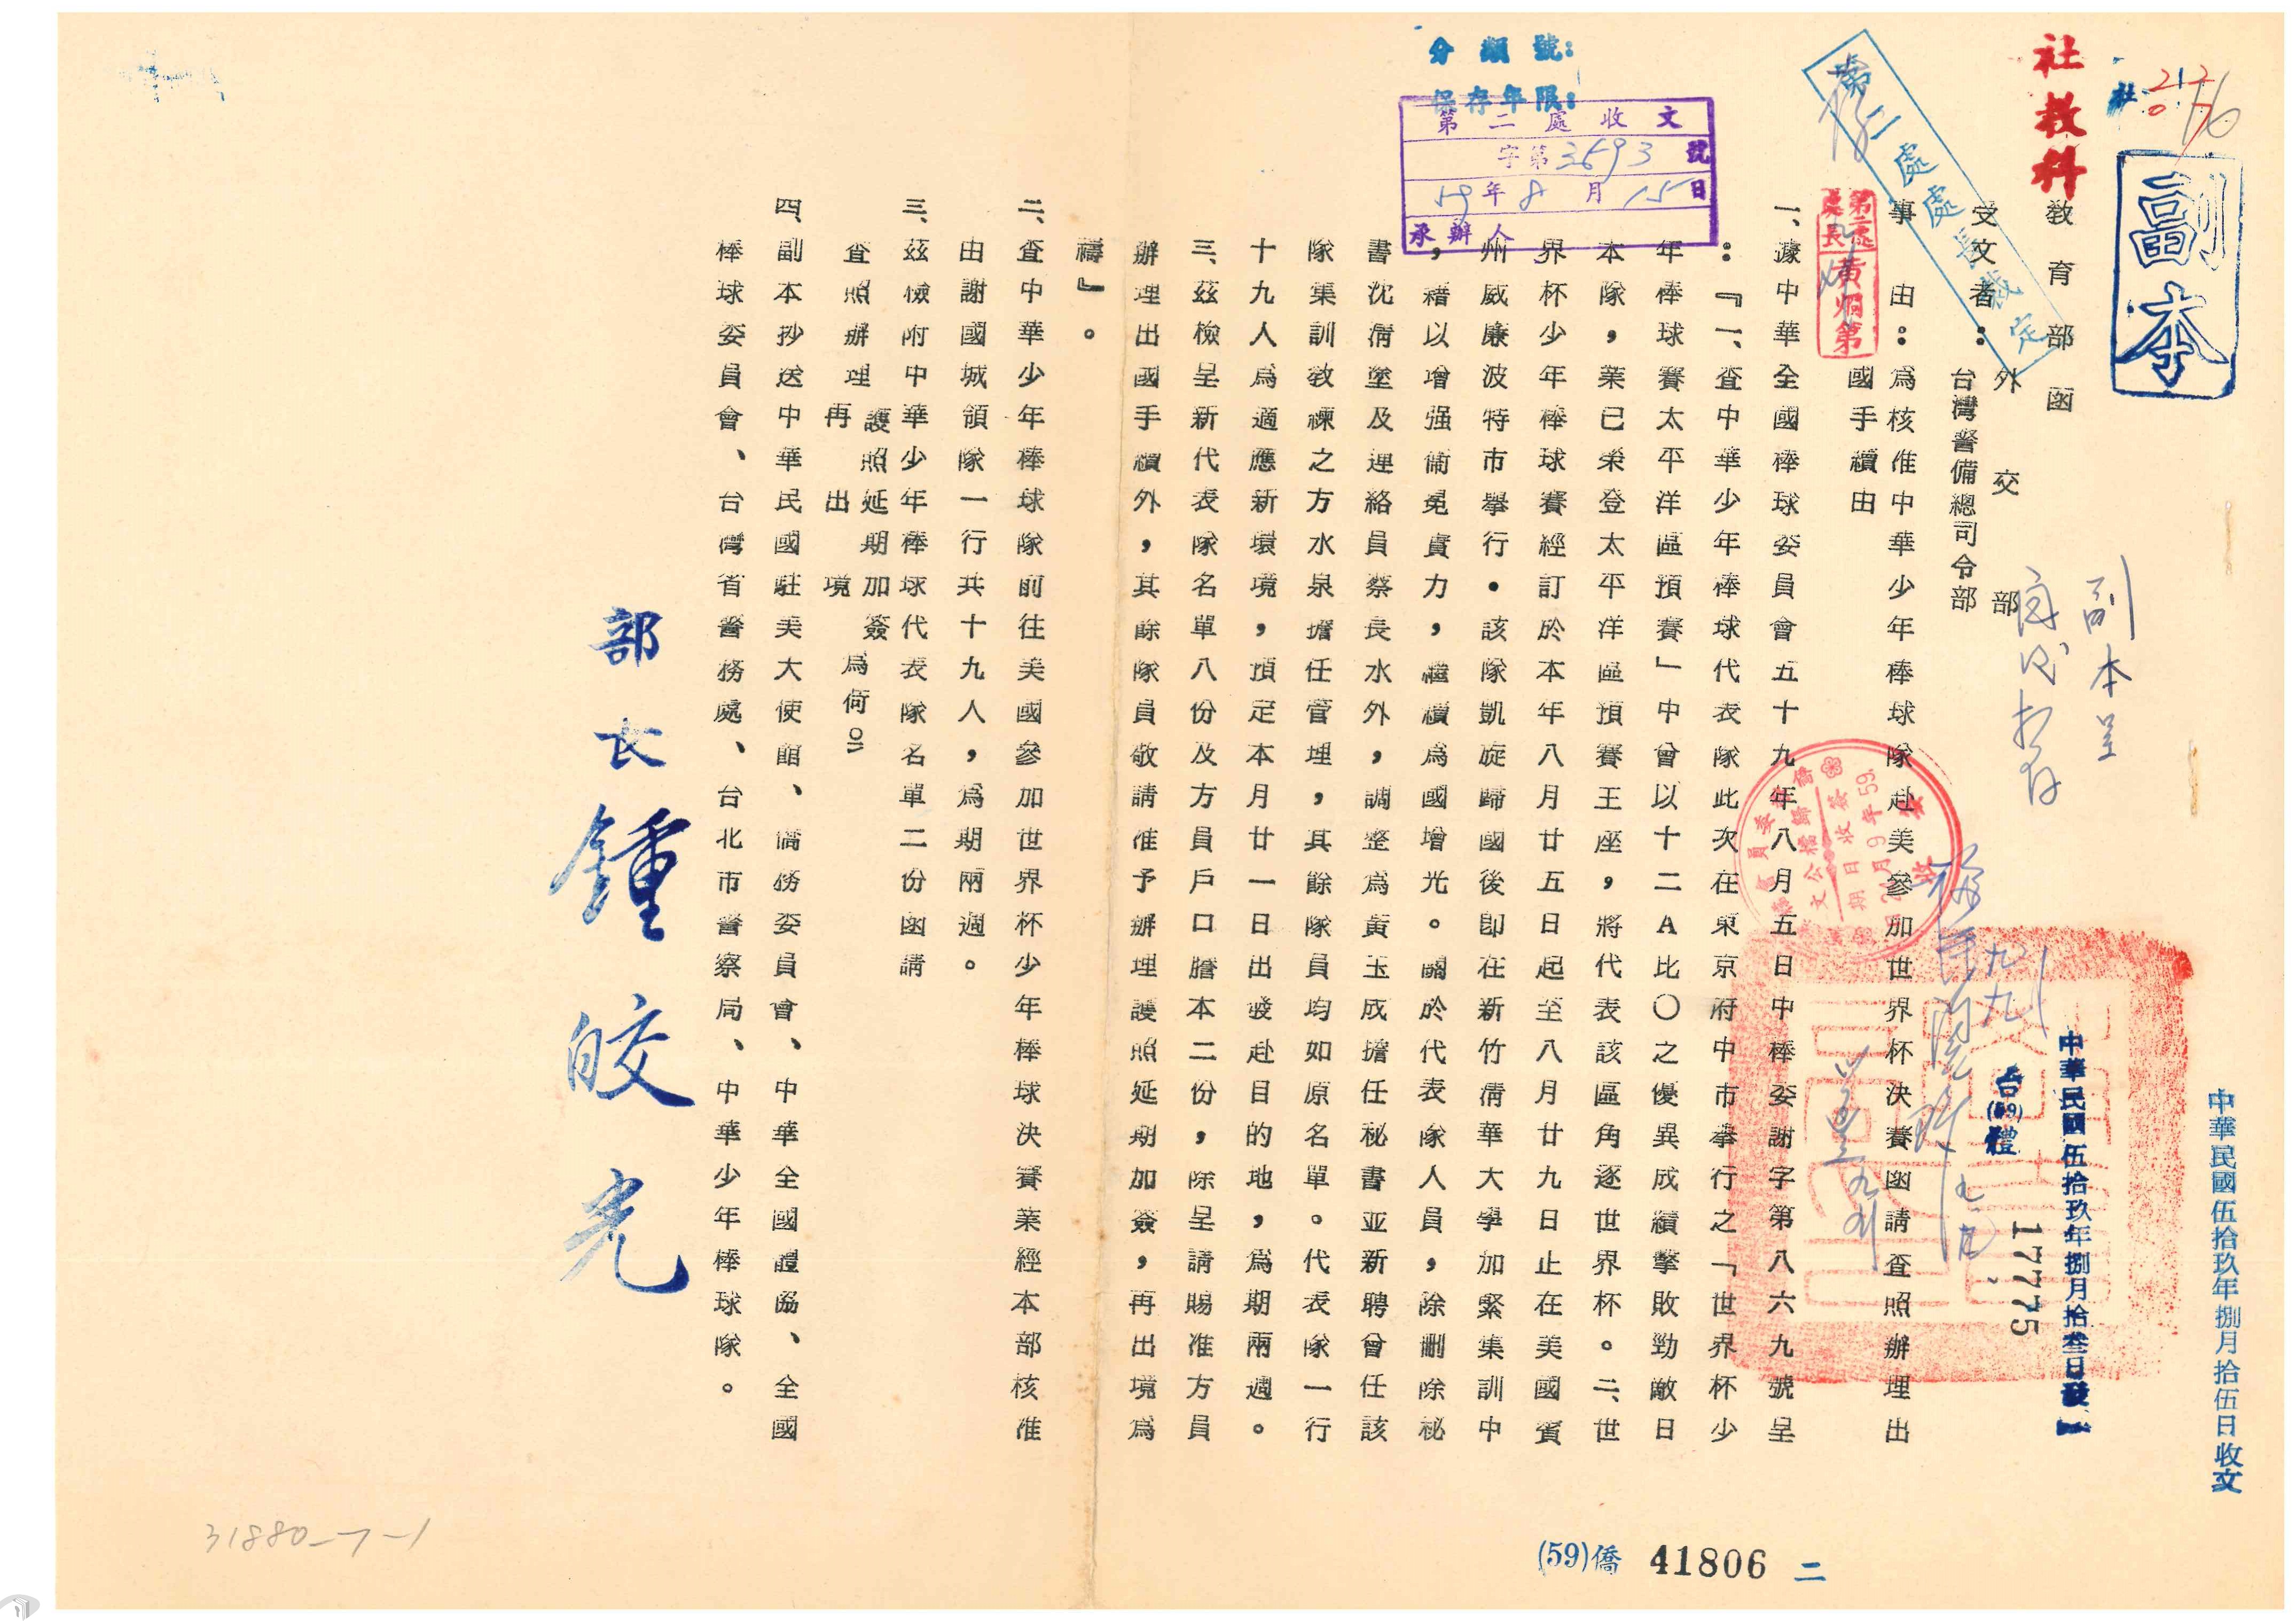 中華民國伍拾玖年捌月拾伍日收文
副本
社
社教科
教育部函
中華民國伍拾玖年捌月拾叁日發
台(59)體
17775
副本呈
受文者：外交部
台灣警備總司令部
事由：為核准中華少年棒球隊赴美參加世界杯決賽函請查照辦理出
國手續由
第二處處長裁定
第二處處長黃烱第
一、據中華全國棒球委員會五十九年八月五日中棒委謝字第八六九號呈
：『一、查中華少年棒球代表隊此次在東京府中市舉行之「世界杯少
年棒球賽太平洋區預賽」中曾以十二A比〇之優異成績擊敗勁敵日
本隊，業已榮登太平洋區預賽王座，將代表該區角逐世界杯。二、世
界杯少年棒球賽經訂於本年八月廿五日起至八月廿九日止在美國賓
州威廉波特市舉行．該隊凱旋歸國後即在新竹清華大學加緊集訓中
，藉以增强衞冕實力，繼續為國增光。關於代表隊人員，除刪除祕
書沈清塗及連絡員蔡長水外，調整為黃玉成擔任秘書並新聘曾任該
隊集訓教練之方水泉擔任管理，其餘隊員均如原名單。代表隊一行
十九人為適應新環境，預定本月廿一日出發赴目的地，為期兩週。
三、茲檢呈新代表隊名單八份及方員戶口謄本二份，除呈請賜准方員
辦理出國手續外，其餘隊員敬請准予辦理護照延期加簽，再出境為
禱』。
二、查中華少年棒球隊前往美國參加世界杯少年棒球決賽業經本部核准
由謝國城領隊一行共十九人，為期兩週。
三、茲檢附中華少年棒球代表隊名單二份函請
查照辦理護照延期加簽
再出境為荷
四、副本抄送中華民國駐美大使館、僑務委員會、中華全國體協、全國
棒球委員會、台灣省警務處、台北市警察局、中華少年棒球隊。
部長鍾皎光
分類號：
保存年限：
第二處收文
字第3693號
59年8月15日
承辦人
(59)僑 41806 二
31880-7-1